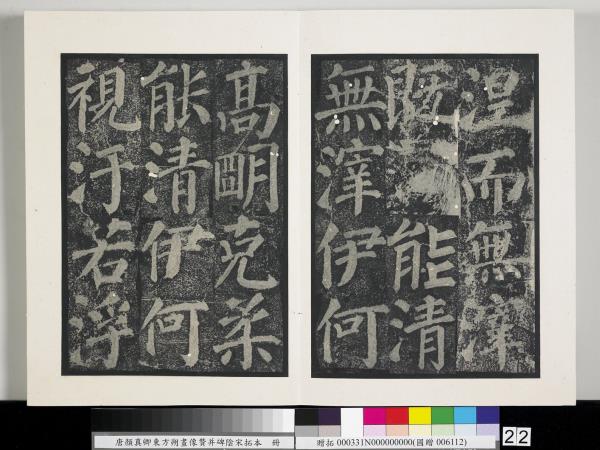 涅而無滓
既能清
無滓伊何
高朙克柔
能清伊何
視汙若浮
唐顏真卿東方朔畫像贊并碑陰宋拓本 冊 贈拓 000331N000000000(國贈 006112)
22